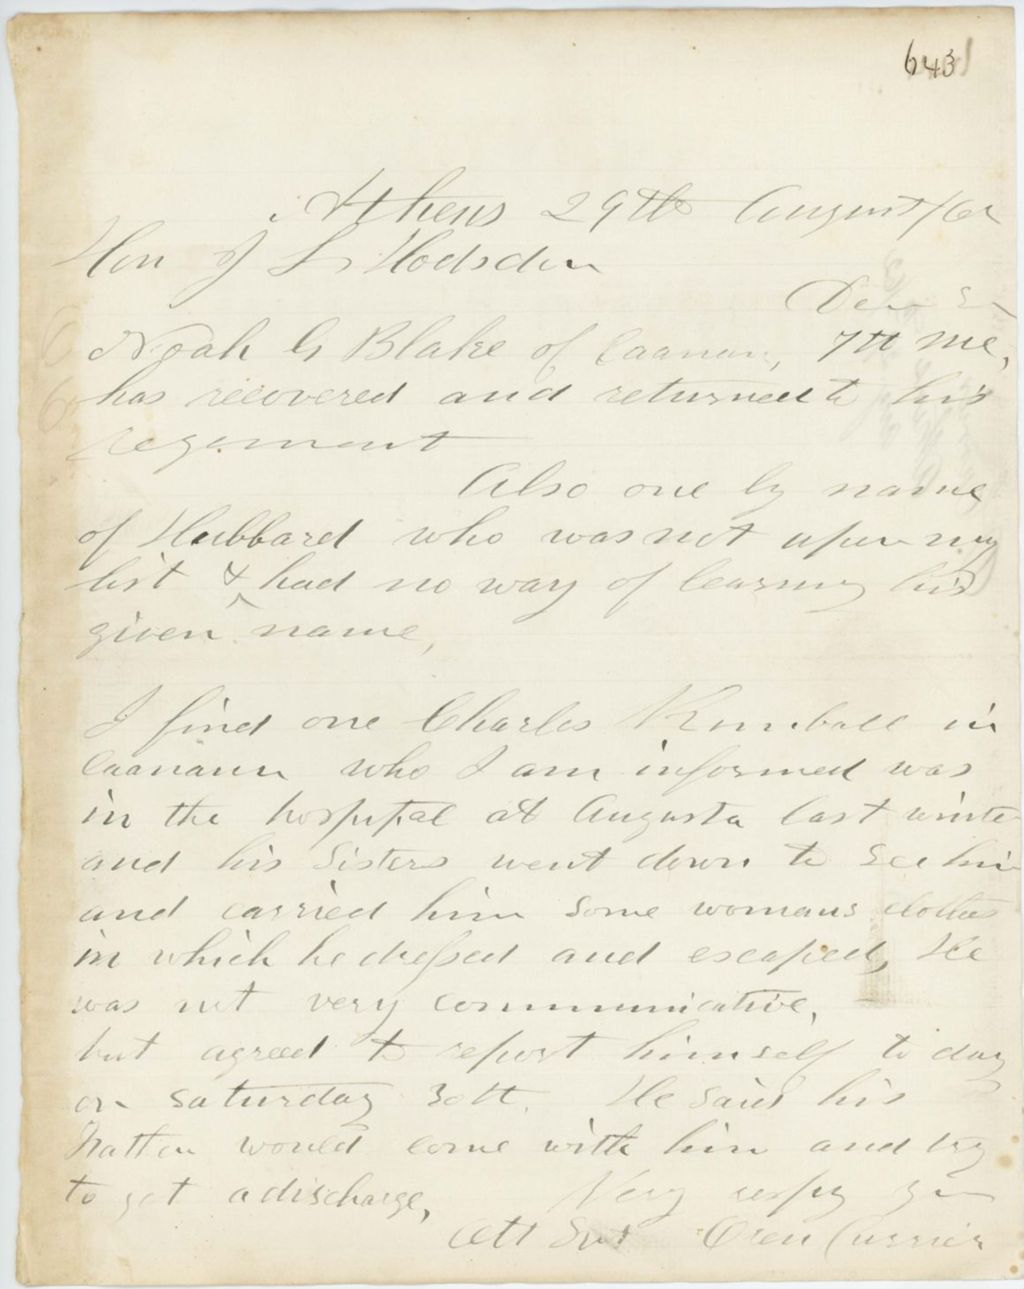 643
Athens 29th August/62
Hon J L Hodsdon
Dear Sir
Noah G Blake of Caanan, 7th Me,
has recovered and returned to his
regiment
Also one by name
of Hubbard who was not upon my
list & had no way of learning his
given name,
I find one Charles Kimball in
Caanann who I am informed was
in the hospital at Augusta last winter
and his Sisters went down to see him
and carried him some womans clothes
in which he dressed and escaped, He
was not very communicative,
but agreed to report himself to day
or Saturday 30th. He said his
Father would come with him and try
to get a discharge,
Very respy your
Obt Svt Oren Currier